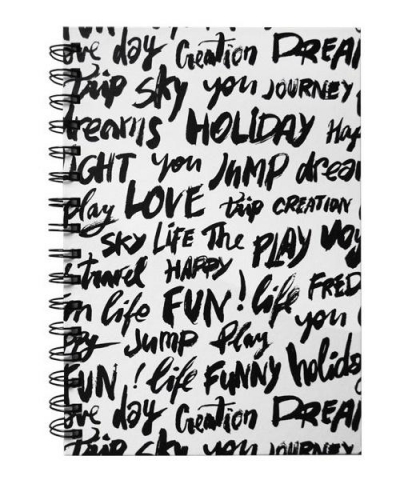 ove day Creation DREAM
Trip Sky you JOURNEY
reams HOLIDAY Hap
IGHT you JUMP dream
play LOVE trip CREATION
SKY LIFE The PLAY VOY
travel HAPPY
in life FUN! life FRED
you
ppy Jump Play
FUN! life FUNNY holiday
ove day Creation DREAM
Trip Sky you JOURNEY